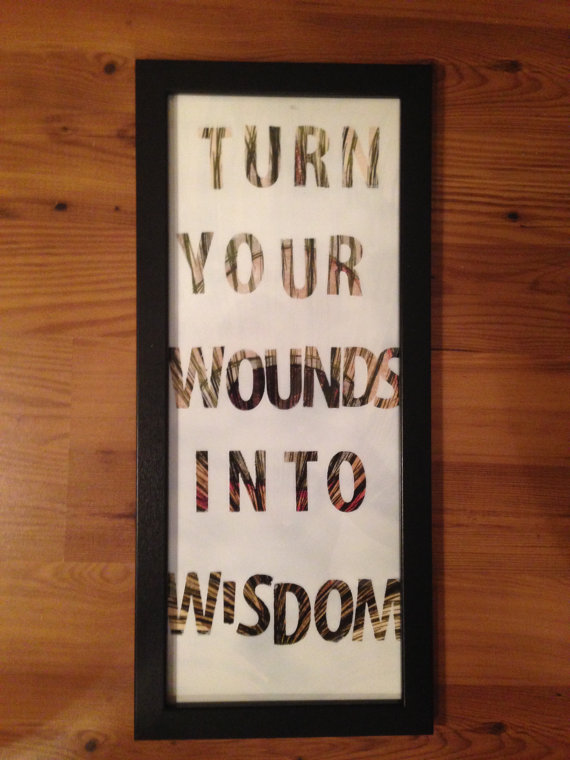 TURN
YOUR
WOUNDS
INTO
WiSDOM